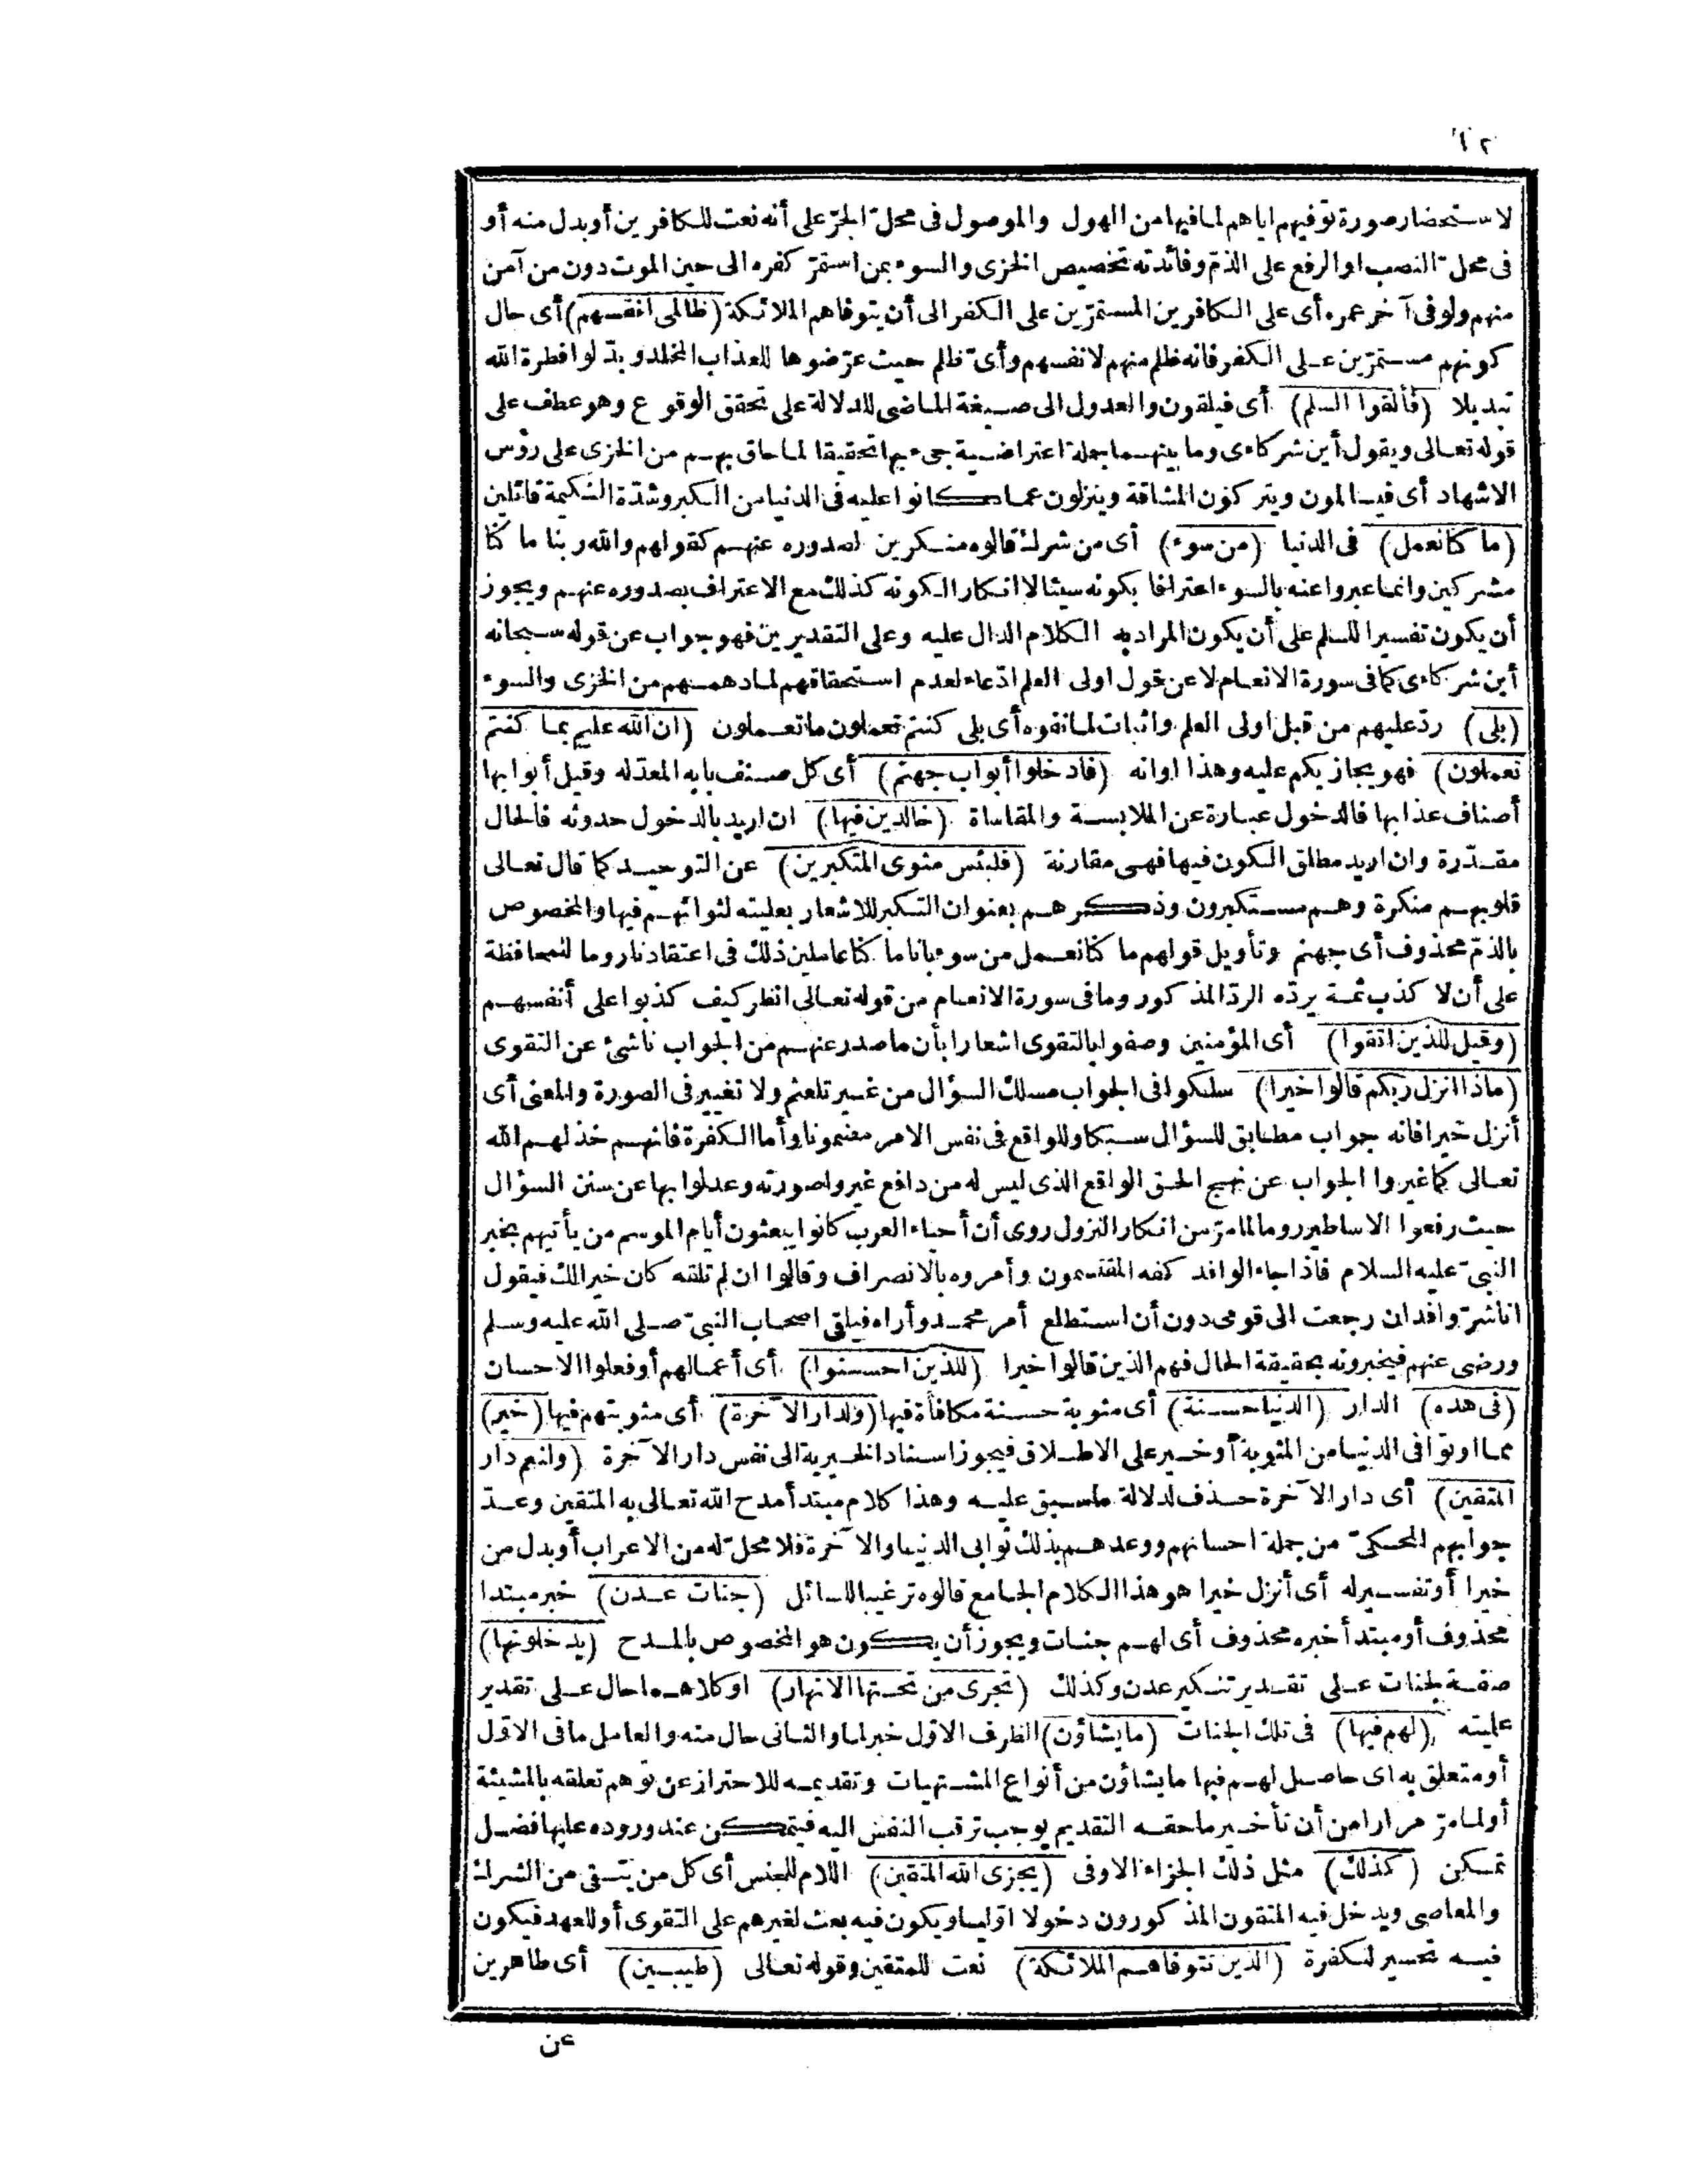 لاستحضار صورة توفيهم اياهم لما فيها من الهول والموصول فى محل الجرّ على أنه نعت للكافرين أو بدل منه أو
فى محل النصب او الرفع على الذمّ وفائدته تخصيص الخزى والسوء بمن استمرّ كفره الى حين الموت دون من آمن
منهم ولو فى آخر عمره أى على الكافرين المستمرّين على الكفر الى أن يتوفاهم الملائكة (ظالمى انفسهم) أى حال
كونهم مستمرّين على الكفر فانه ظلم منهم لانفسهم وأىّ ظلم حيث عرّضوها للعذاب المخلد وبدّلوا فطرة الله
تبديلا (فألقوا السلم) أى فيلقون والعدول الى صيغة الماضى للدلالة على تحقق الوقوع وهو عطف على
قوله تعالى ويقول أين شركاءى وما بينهما جملة اعتراضية جىء بها تحقيقا لما حاق بهم من الخزى على رؤس
الاشهاد أى فيسالمون ويتركون المشاقة وينزلون عما كانوا عليه فى الدنيا من الكبر وشدّة الشكيمة قائلين
(ما كنا نعمل) فى الدنيا (من سوء) أى من شرك قالوه منكرين لصدوره عنهم كقولهم والله ربنا ما كنا
مشركين وانما عبروا عنه بالسوء اعترافا بكونه سيئا لا انكارا لكونه كذلك مع الاعتراف بصدوره عنهم ويجوز
أن يكون تفسيرا للسلم على أن يكون المراد به الكلام الدال عليه وعلى التقديرين فهو جواب عن قوله سبحانه
أين شركاءى كما فى سورة الانعام لا عن قول اولى العلم ادّعاء لعدم استحقاقهم لما دهمهم من الخزى والسوء
(بلى) ردّ عليهم من قبل اولى العلم واثبات لما نفوه أى بلى كنتم تعملون ما تعملون (ان الله عليم بما كنتم
تعملون) فهو يجازيكم عليه وهذا اوانه (فادخلوا أبواب جهنم) أى كل صنف بابه المعدّ له وقيل أبوابها
أصناف عذابها فالدخول عبارة عن الملابسة والمقاساة (خالدين فيها) ان اريد بالدخول حدوثه فالحال
مقدّرة وان اريد مطلق الكون فيها فهى مقارنة (فلبئس مثوى المتكبرين) عن التوحيد كما قال تعالى
قلوبهم منكرة وهم مستكبرون وذكرهم بعنوان التكبر للاشعار بعليته لثوائهم فيها والمخصوص
بالذمّ محذوف أى جهنم وتأويل قولهم ما كنا نعمل من سوء بانا ما كنا عاملين ذلك فى اعتقادنا روما للمحافظة
على أن لا كذب ثمة يردّه الردّ المذكور وما فى سورة الانعام من قوله تعالى انظر كيف كذبوا على أنفسهم
(وقيل للذين اتقوا) أى المؤمنين وصفوا بالتقوى اشعارا بأن ما صدر عنهم من الجواب ناشئ عن التقوى
(ماذا انزل ربكم قالوا خيرا) سلكوا فى الجواب مسلك السؤال من غير تلعثم ولا تغيير فى الصورة والمعنى أى
أنزل خيرا فانه جواب مطابق للسؤال سبكا وللواقع فى نفس الامر مضمونا وأما الكفرة فانهم خذلهم الله
تعالى كما غيروا الجواب عن نهج الحق الواقع الذى ليس له من دافع غيروا صورته وعدلوا بها عن سنن السؤال
حيث رفعوا الاساطير روما لما مرّ من انكار النزول روى أن أحياء العرب كانوا يبعثون أيام الموسم من يأتيهم بخبر
النبىّ عليه السلام فاذا جاء الوافد كفه المقتسمون وأمروه بالانصراف وقالوا ان لم تلقه كان خيرا لك فيقول
انا شرّ وافد ان رجعت الى قومى دون أن استطلع أمر محمد وأراه فيلقى اصحاب النبىّ صلى الله عليه وسلم
ورضى عنهم فيخبرونه بحقيقة الحال فهم الذين قالوا خيرا (للذين احسنوا) أى أعمالهم أو فعلوا الاحسان
(فى هذه) الدار (الدنيا حسنة) أى مثوبة حسنة مكافأة فيها (ولدار الآخرة) أى مثوبتهم فيها (خير)
مما اوتوا فى الدنيا من المثوبة أو خير على الاطلاق فيجوز اسناد الخيرية الى نفس دار الآخرة (ولنعم دار
المتقين) أى دار الآخرة حذف لدلالة ما سبق عليه وهذا كلام مبتدأ مدح الله تعالى به المتقين وعدّ
جوابهم المحكىّ من جملة احسانهم ووعدهم بذلك ثوابى الدنيا والآخرة فلا محلّ له من الاعراب أو بدل من
خيرا أو تفسير له أى أنزل خيرا هو هذا الكلام الجامع قالوه ترغيبا للسائل (جنات عدن) خبر مبتدا
محذوف أو مبتدأ خبره محذوف أى لهم جنات ويجوز أن يكون هو المخصوص بالمدح (يدخلونها)
صفة لجنات على تقدير تنكير عدن وكذلك (تجرى من تحتها الانهار) او كلاهما حال على تقدير
علميته (لهم فيها) فى تلك الجنات (ما يشاؤن) الظرف الاوّل خبر لما والثانى حال منه والعامل ما فى الاوّل
أو متعلق به اى حاصل لهم فيها ما يشاؤن من أنواع المشتهيات وتقديمه للاحتراز عن توهم تعلقه بالمشيئة
أو لما مرّ مرارا من أن تأخير ما حقه التقديم يوجب ترقب النفس اليه فيتمكن عند وروده عليها فضل
تمكن (كذلك) مثل ذلك الجزاء الاوفى (يجزى الله المتقين) اللام للجنس أى كل من يتقى من الشرك
والمعاصى ويدخل فيه المتقون المذكورون دخولا اوّليا ويكون فيه بعث لغيرهم على التقوى أو للعهد فيكون
فيه تحسير للكفرة (الذين تتوفاهم الملائكة) نعت للمتقين وقوله تعالى (طيبين) أى طاهرين
عن